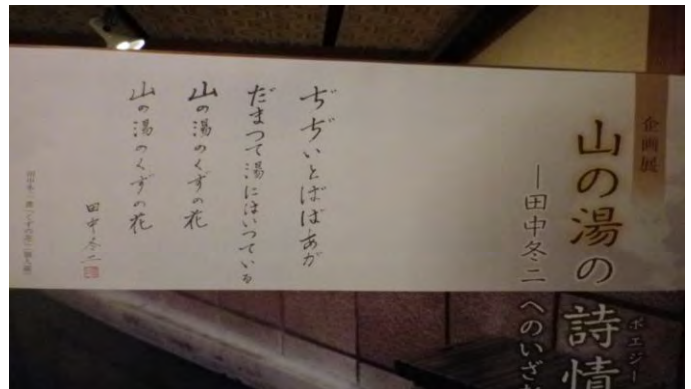 企画展
山の湯の詩情
ポエジー
―田中冬二へのいざ
ぢぢいとばばあが
だまつて湯にはいつている
山の湯のくずの花
山の湯のくずの花
田中冬二